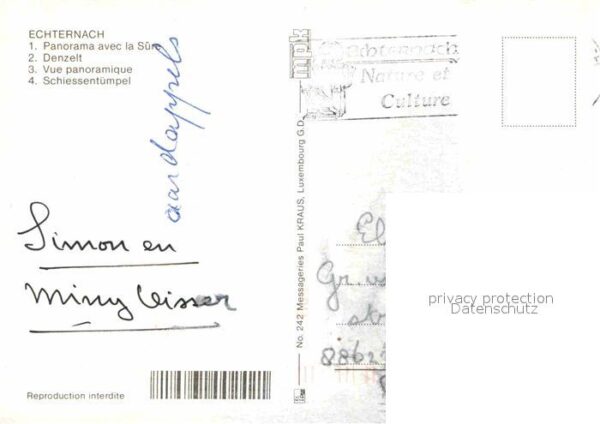 ECHTERNACH
1. Panorama avec la Sûre
2. Denzelt
3. Vue panoramique
4. Schiessentümpel
aardappels
Simon en
Miny Visser
Reproduction interdite
No. 242 Messageries Paul KRAUS, Luxembourg G.D.
mpk
Echternach
Nature et
Culture
El
Gr.
str
8862
privacy protection
Datenschutz